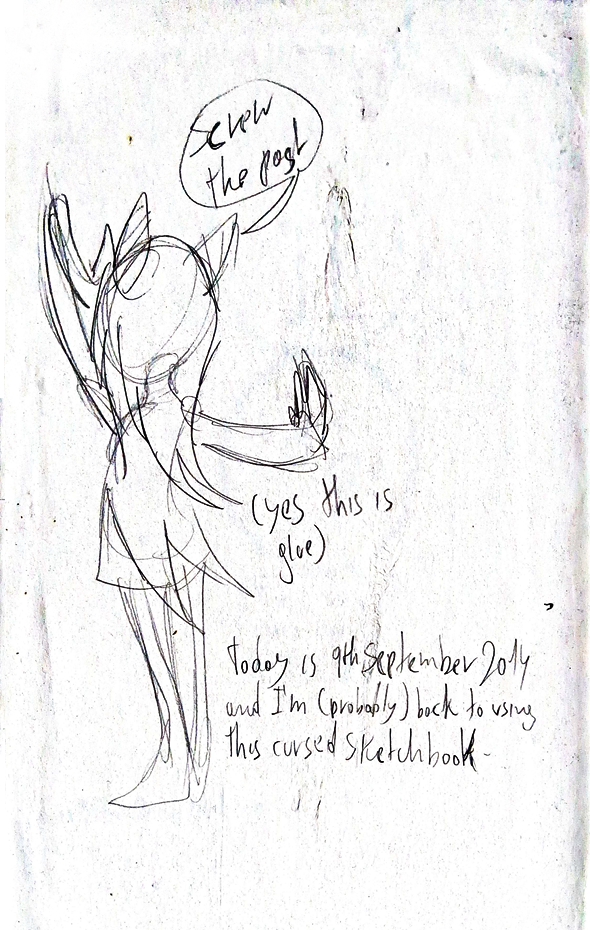 Screw
the past
(yes this is
glue)
Today is 9th September 2014
and I'm (probably) back to using
this cursed sketchbook.